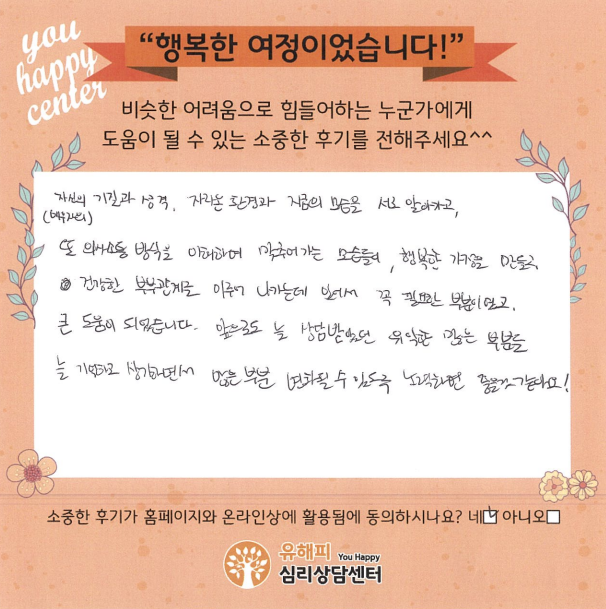 you
happy
center
“행복한 여정이었습니다!”
비슷한 어려움으로 힘들어하는 누군가에게
도움이 될 수 있는 소중한 후기를 전해주세요^^
자신의 기질과 성격, 자라온 환경과 지금의 모습을 서로 알아가고,
(배우자의)
또 의사소통 방식을 이해하며 맞추어가는 모습들이, 행복한 가정을 만들고
건강한 부부관계를 이루어 나가는데 있어서 꼭 필요한 부분이였고,
큰 도움이 되었습니다. 앞으로도 늘 상담받았던 유익한 많은 부분들
늘 기억하고 상기하면서 많은 부분 변화될 수 있도록 노력하면 좋을것같아요!
소중한 후기가 홈페이지와 온라인상에 활용됨에 동의하시나요? 네 아니오
유해피 You Happy
심리상담센터